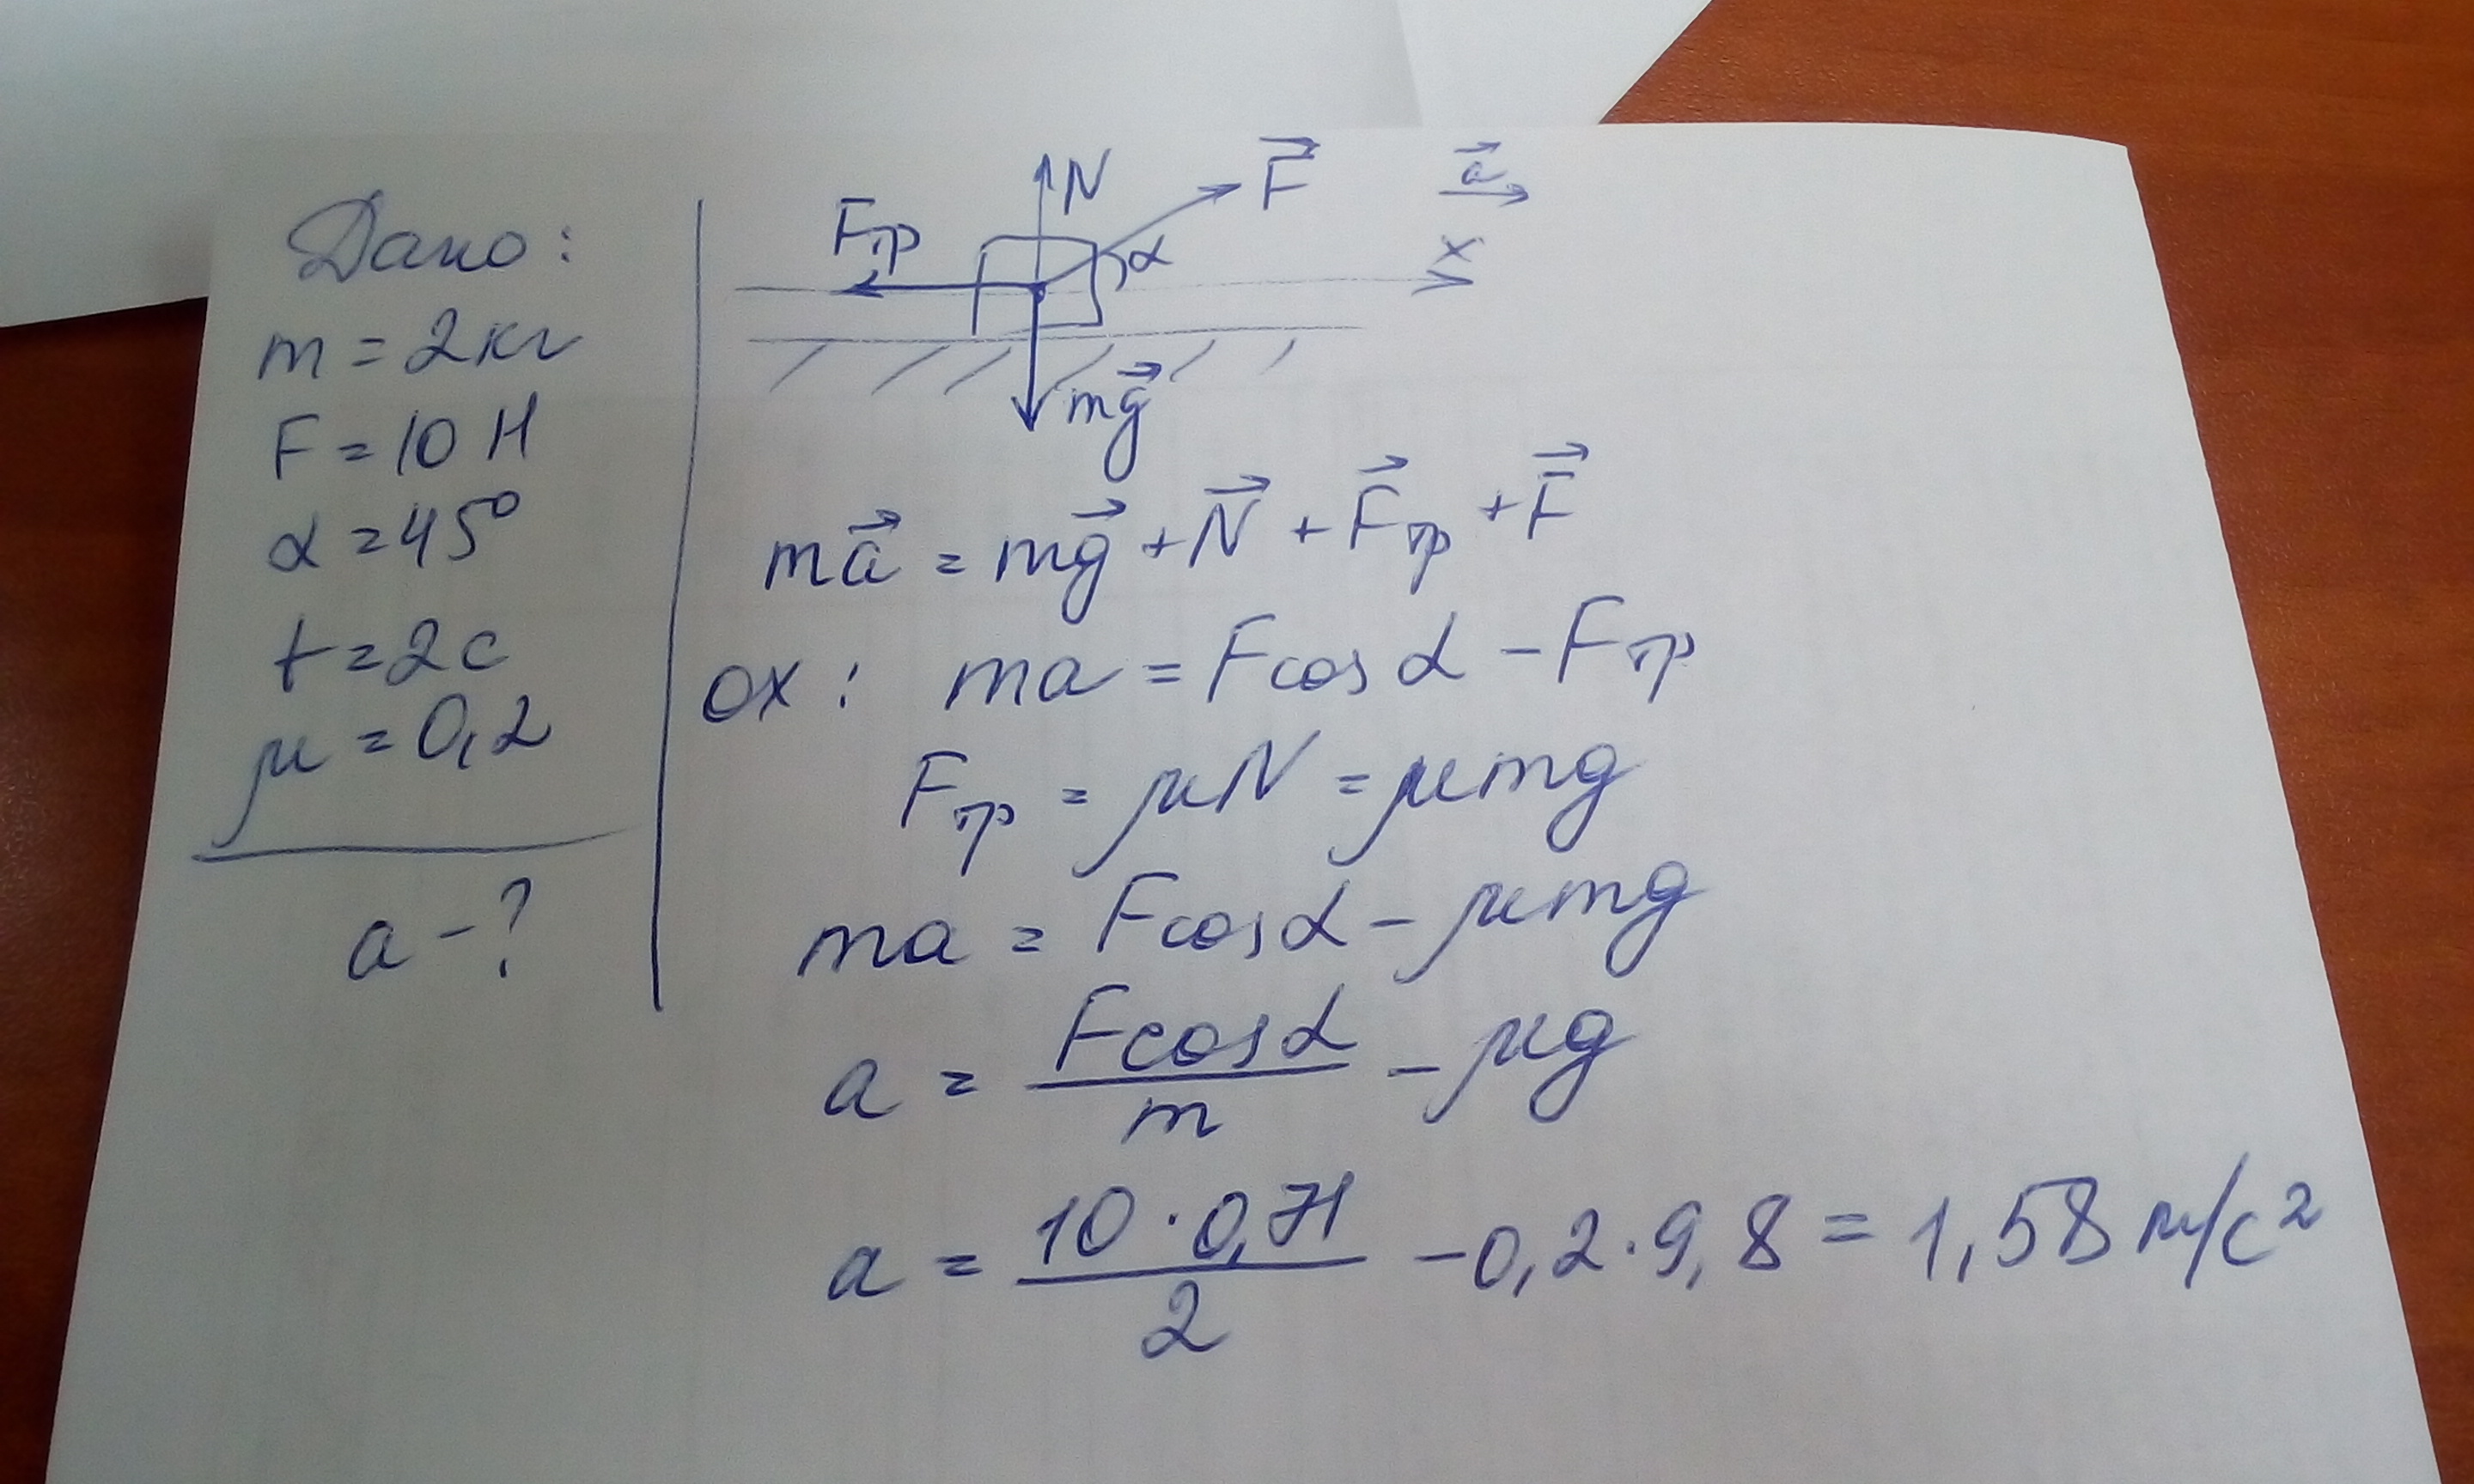 Дано:
m = 2 кг
F = 10 Н
α = 45°
t = 2 с
μ = 0,2
a - ?
N
F⃗
a⃗
Fтр
α
x
mg⃗
ma⃗ = mg⃗ + N⃗ + F⃗тр + F⃗
ox: ma = Fcos α - Fтр
Fтр = μN = μmg
ma = Fcosα - μmg
a = Fcosα / m - μg
a = 10 · 0,71 / 2 - 0,2 · 9,8 = 1,58 м/с²